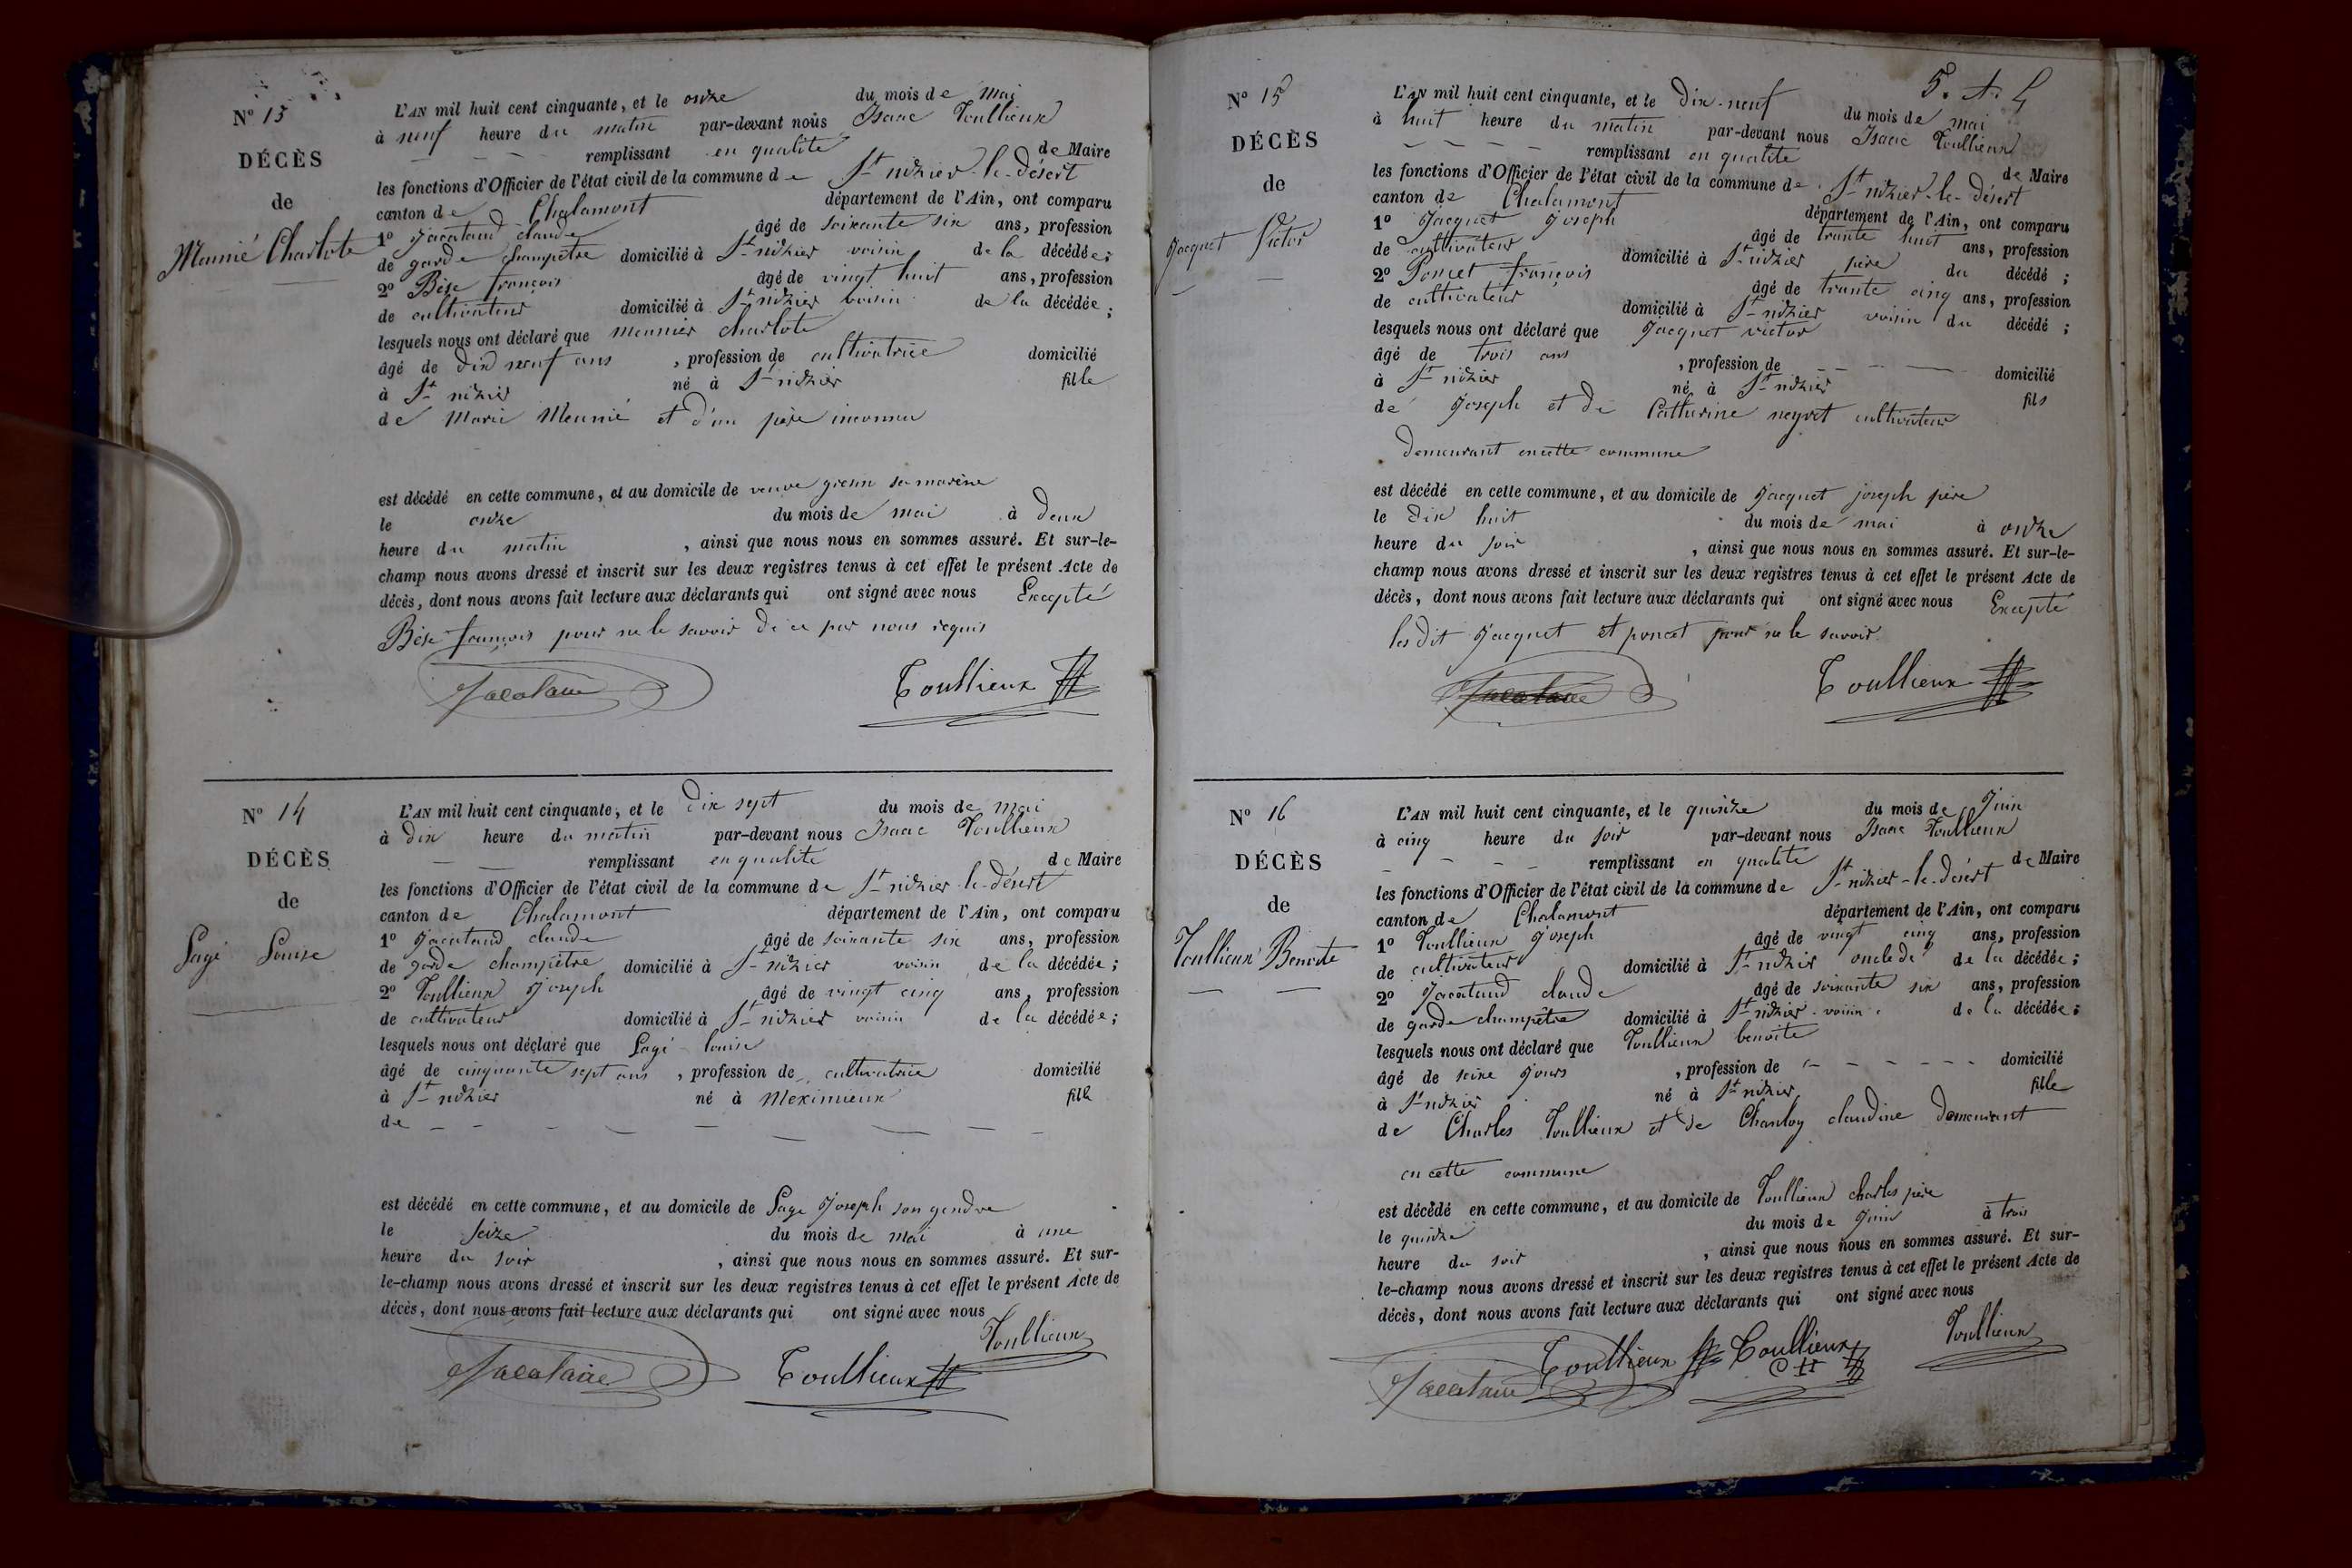 N° 13
DÉCÈS
de
Meunié Charlote
L'AN mil huit cent cinquante, et le onze du mois de mai
à neuf heure du matin par-devant nous Isaac Toullieux
remplissant en qualité de Maire
les fonctions d'Officier de l'état civil de la commune de St nizier-le-désert
canton de Chalamont département de l'Ain, ont comparu
1° Jacataud claude âgé de soixante six ans, profession
de garde champetre domicilié à St nizier voisin de la décédée;
2° Bése françois âgé de vingt huit ans, profession
de cultivateur domicilié à St nizier voisin de la décédée;
lesquels nous ont déclaré que meunier charlote
âgé de dix neuf ans, profession de cultivatrice domicilié
à St nizier né à St nizier fille
de Marie Meunié et d'un père inconnu
est décédé en cette commune, et au domicile de veuve grenn sa marène
le onze du mois de mai à deux
heure du matin, ainsi que nous nous en sommes assuré. Et sur-le-
champ nous avons dressé et inscrit sur les deux registres tenus à cet effet le présent Acte de
décès, dont nous avons fait lecture aux déclarants qui ont signé avec nous Excepté
Bése françois pour ne le savoir de ce par nous requis
Toullieux
N° 14
DÉCÈS
de
Pagé Louise
L'AN mil huit cent cinquante, et le dix sept du mois de mai
à dix heure du matin par-devant nous Isaac Toullieux
remplissant en qualité de Maire
les fonctions d'Officier de l'état civil de la commune de St nizier-le-désert
canton de Chalamont département de l'Ain, ont comparu
1° Jacataud claude âgé de soixante six ans, profession
de garde champêtre domicilié à St nizier voisin de la décédée;
2° Toullieux Joseph âgé de vingt cinq ans, profession
de cultivateur domicilié à St nizier voisin de la décédée;
lesquels nous ont déclaré que Pagé louise
âgé de cinquante sept ans, profession de cultivatrice domicilié
à St nizier né à Meximieux fille
de
est décédé en cette commune, et au domicile de Page Joseph son gendre
le seize du mois de mai à une
heure du soir, ainsi que nous nous en sommes assuré. Et sur-
le-champ nous avons dressé et inscrit sur les deux registres tenus à cet effet le présent Acte de
décès, dont nous avons fait lecture aux déclarants qui ont signé avec nous
Toullieux
Toullieux
5. A. G
N° 15
DÉCÈS
de
Jacquet Victor
L'AN mil huit cent cinquante, et le dix-neuf du mois de mai
à huit heure du matin par-devant nous Isaac Toullieux
remplissant en qualité de Maire
les fonctions d'Officier de l'état civil de la commune de St nizier-le-désert
canton de Chalamont département de l'Ain, ont comparu
1° Jacquet Joseph âgé de trante huit ans, profession
de cultivateur domicilié à St nizier père du décédé;
2° Poncet françois âgé de trante cinq ans, profession
de cultivateur domicilié à St nizier voisin du décédé;
lesquels nous ont déclaré que Jacquet victor
âgé de trois ans, profession de domicilié
à St nizier né à St nizier fils
de Joseph et de Catherine neyret cultivateur
demeurant en cette commune
est décédé en cette commune, et au domicile de Jacquet joseph père
le dix huit du mois de mai à onze
heure du soir, ainsi que nous nous en sommes assuré. Et sur-le-
champ nous avons dressé et inscrit sur les deux registres tenus à cet effet le présent Acte de
décès, dont nous avons fait lecture aux déclarants qui ont signé avec nous Excepté
les dit Jacquet et poncet pour ne le savoir
Toullieux
N° 16
DÉCÈS
de
Toullieux Benoite
L'AN mil huit cent cinquante, et le quinze du mois de Juin
à cinq heure du soir par-devant nous Isaac Toullieux
remplissant en qualité de Maire
les fonctions d'Officier de l'état civil de la commune de St nizier-le-désert
canton de Chalamont département de l'Ain, ont comparu
1° Toullieux Joseph âgé de vingt cinq ans, profession
de cultivateur domicilié à St nizier oncle de de la décédée;
2° Jacataud claude âgé de soixante six ans, profession
de garde champêtre domicilié à St nizier voisin de la décédée;
lesquels nous ont déclaré que Toullieux benoite
âgé de seize jours, profession de domicilié
à St nizier né à St nizier fille
de Charles Toullieux et de Chanloy claudine demeurant
en cette commune
est décédé en cette commune, et au domicile de Toullieux charles père
le quinze du mois de Juin à trois
heure du soir, ainsi que nous nous en sommes assuré. Et sur-
le-champ nous avons dressé et inscrit sur les deux registres tenus à cet effet le présent Acte de
décès, dont nous avons fait lecture aux déclarants qui ont signé avec nous
Toullieux Toullieux Toullieux